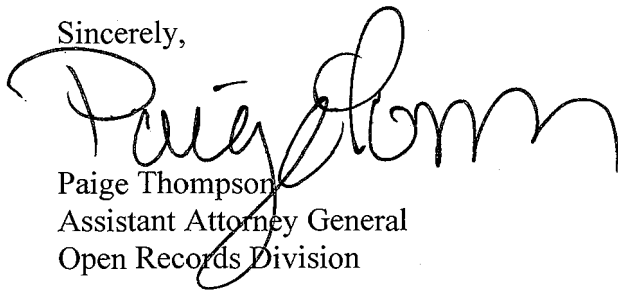 Sincerely,
Paige Thompson
Assistant Attorney General
Open Records Division